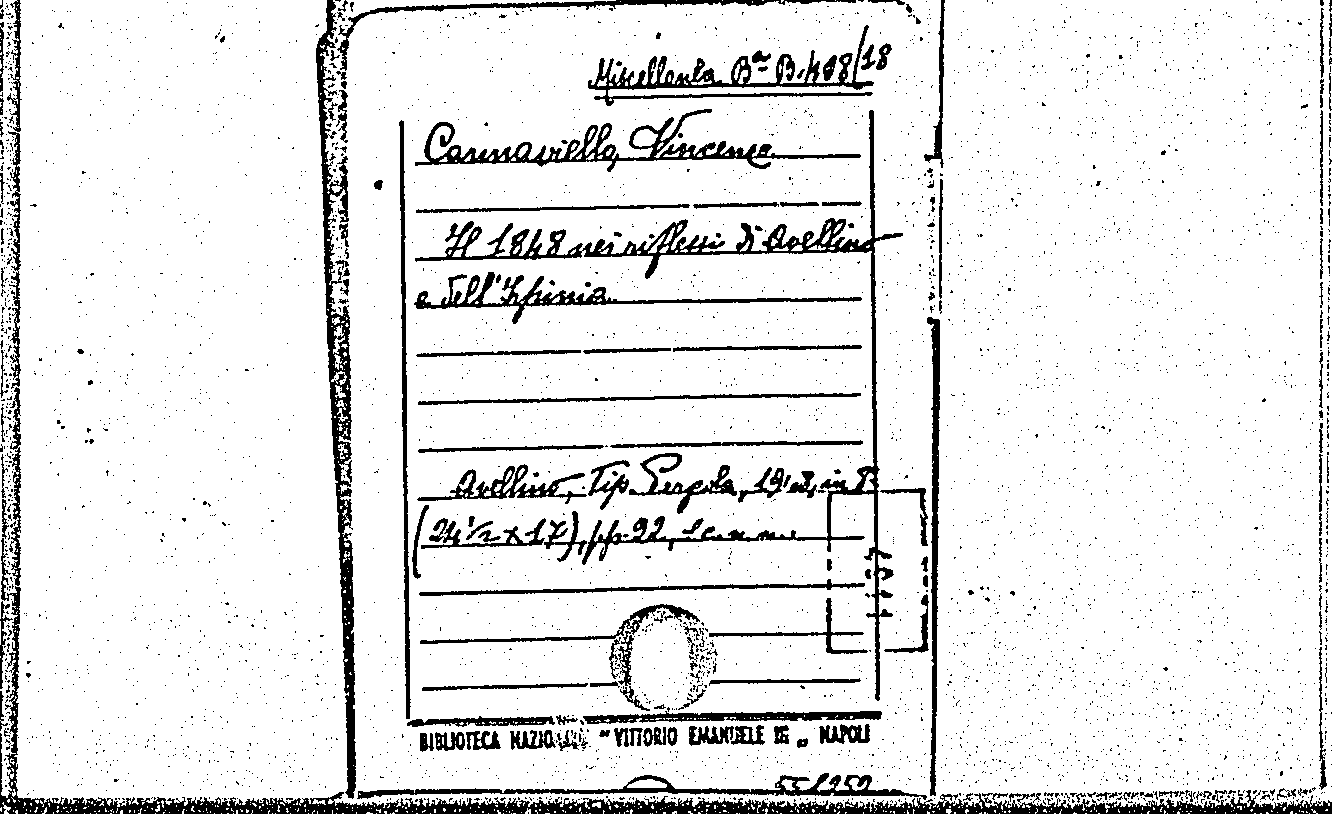 Miscellanea Bª B.408/18
Cannaviello, Vincenzo
Il 1848 nei riflessi di Avellino
e dell'Irpinia.
Avellino, Tip. Pergola, in 8°
(24½ x 17), pp. 92, s.c.n.m.
BIBLIOTECA NAZIONALE "VITTORIO EMANUELE III„ NAPOLI